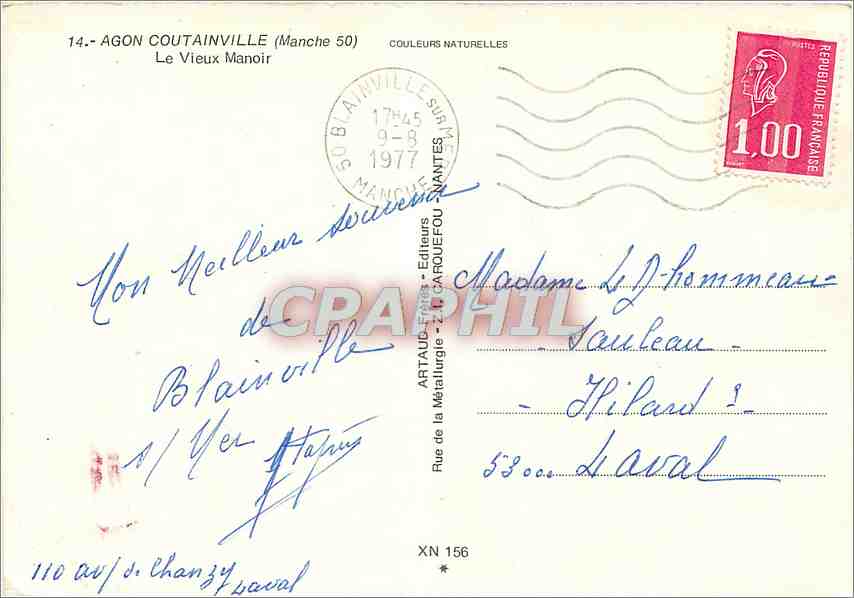 14.- AGON COUTAINVILLE (Manche 50)
Le Vieux Manoir
COULEURS NATURELLES
50 BLAINVILLE SUR MER
17H45
9-8
1977
MANCHE
POSTES
REPUBLIQUE FRANÇAISE
1,00
Mon Meilleur souvenir
de
Blainville
s/ Mer
110 av/ de Chanzy
Laval
ARTAUD Frères - Editeurs
Rue de la Métallurgie - Z.I. CARQUEFOU - NANTES
CPAPHIL
Madame
- Sauleau -
- Hilard -
53000 Laval
XN 156
*